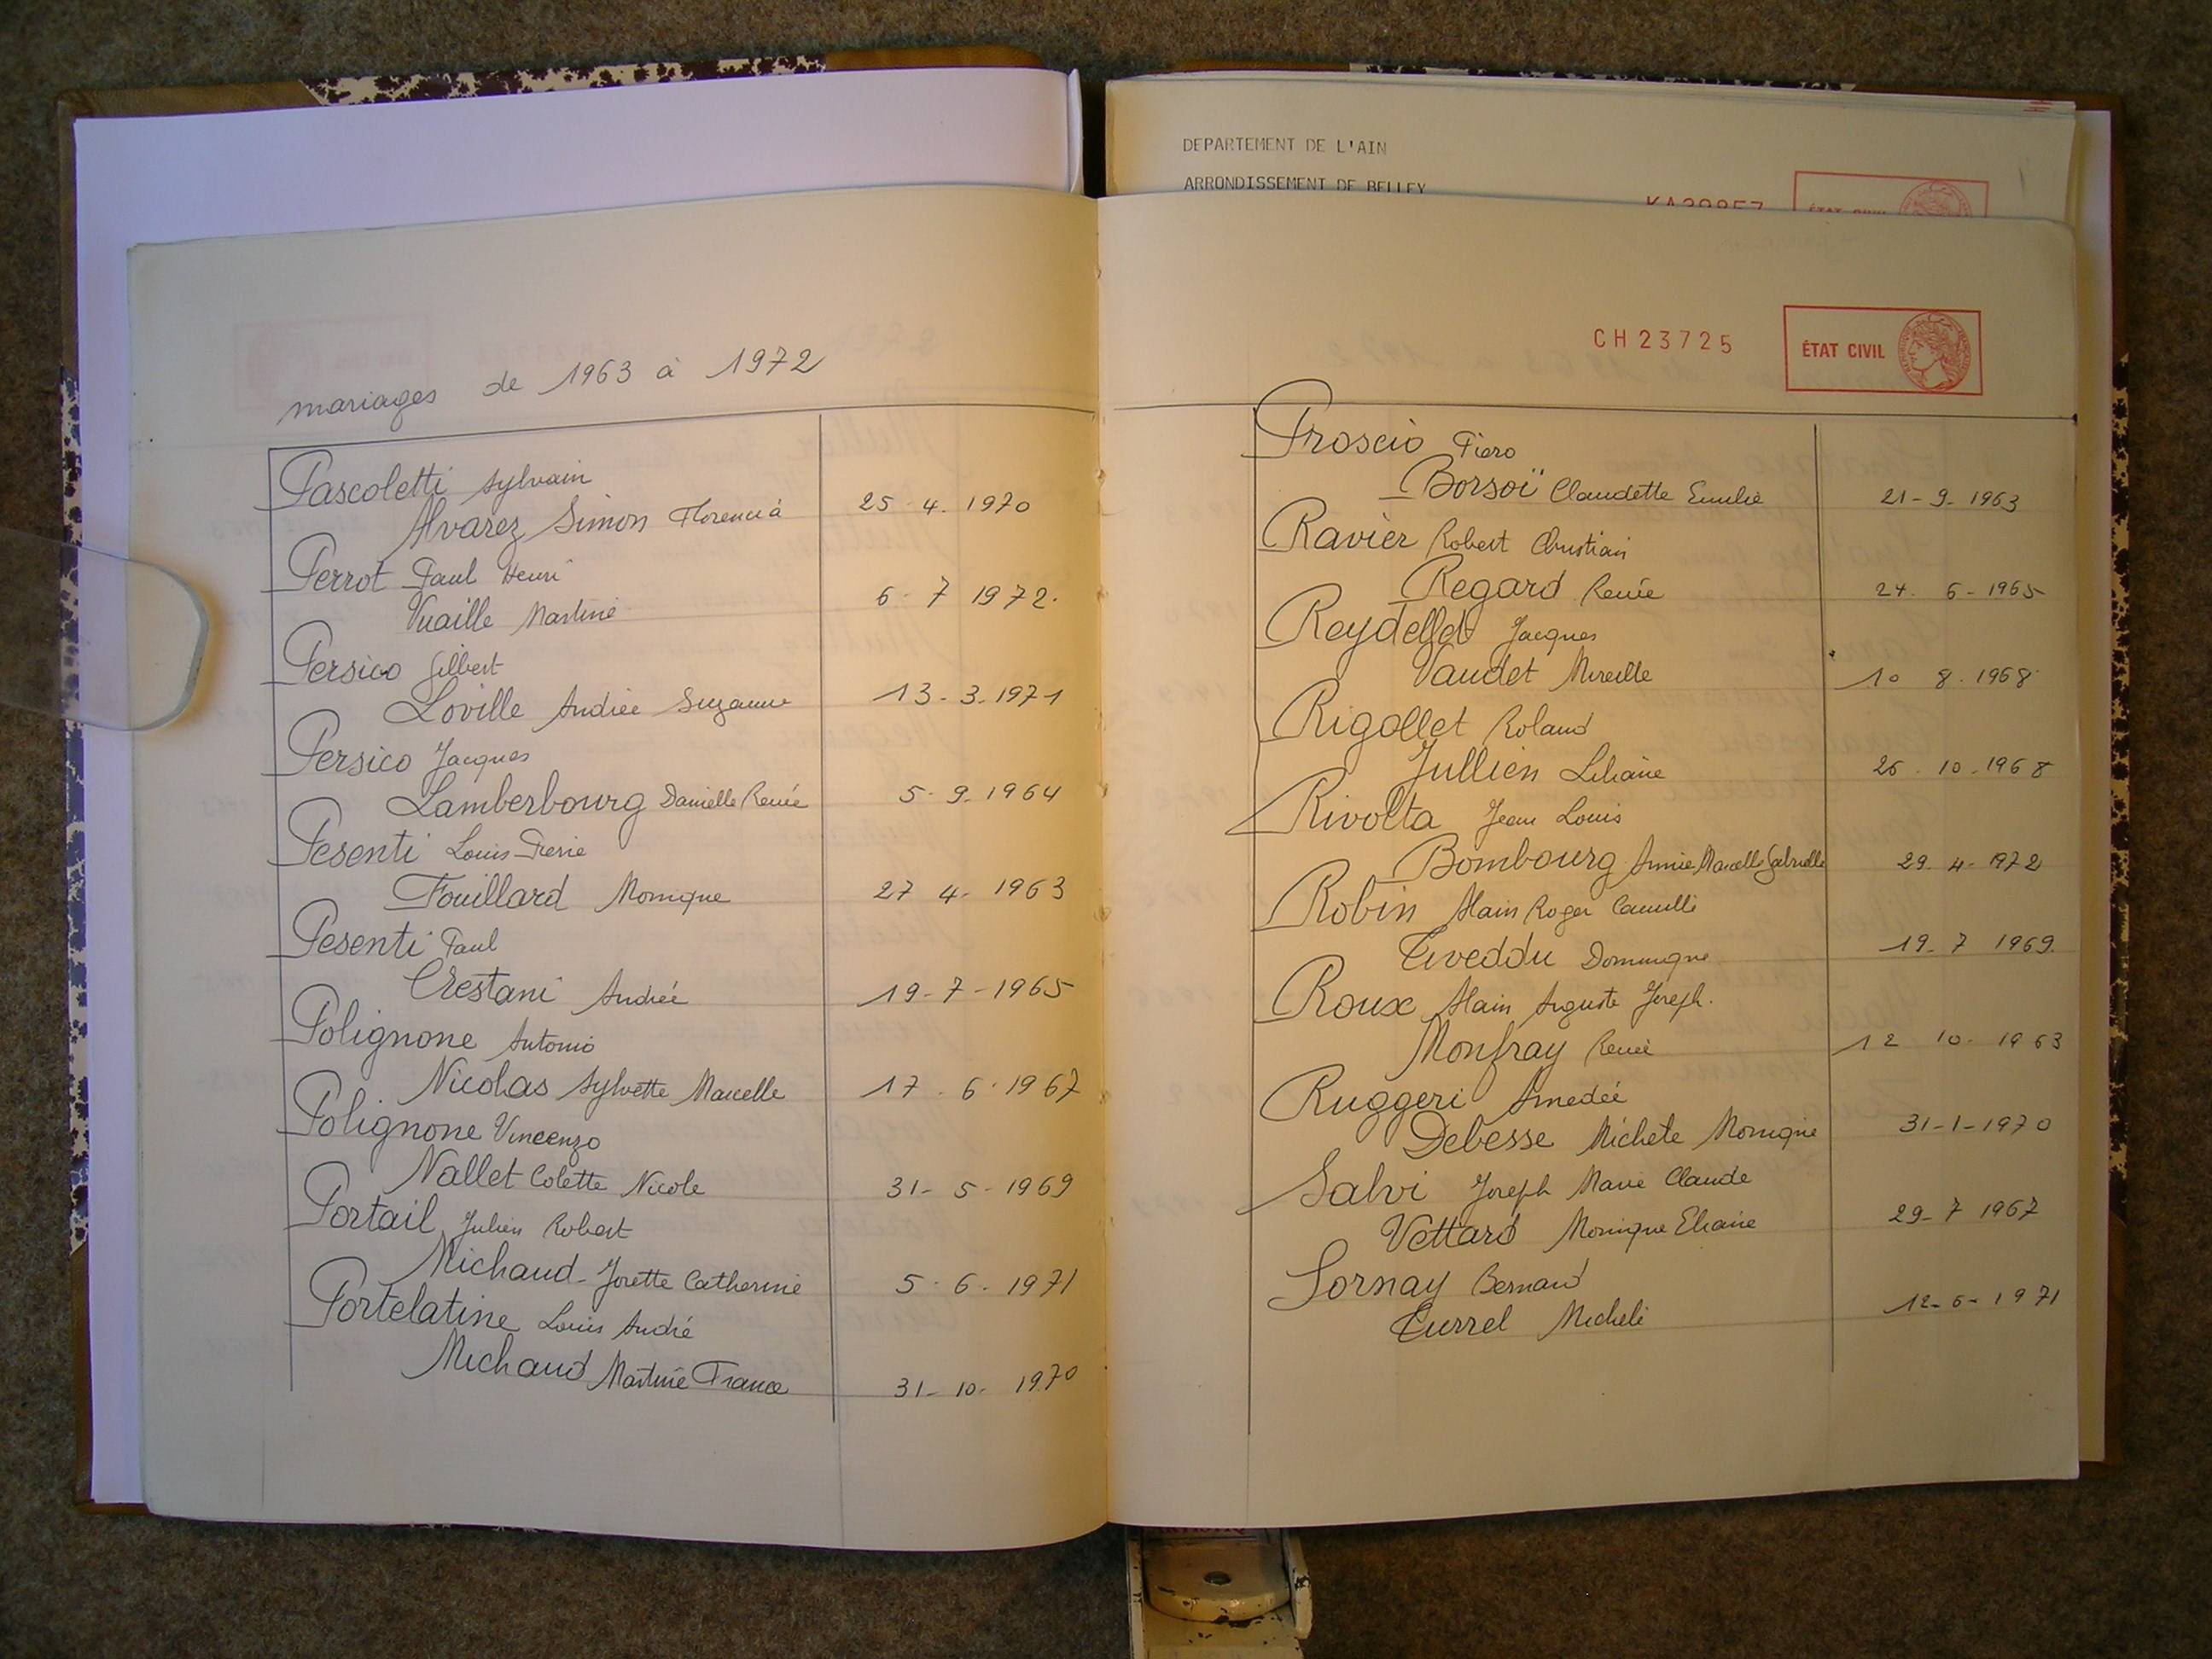 DEPARTEMENT DE L'AIN
ARRONDISSEMENT DE BELLEY
mariages de 1963 à 1972
Pascoletti Sylvain
Alvarez Simon Florencia 25-4.1970
Perrot Paul Henri
Vuaille Martine 6-7 1972.
Persico Gilbert
Loville Andrée Suzanne 13-3-1971
Persico Jacques
Lamberbourg Danielle Renée 5-9-1964
Pesenti Louis-Pierre
Fouillard Monique 27 4-1963
Pesenti Paul
Crestani Andrée 19-7-1965
Polignone Antonio
Nicolas Sylvette Marcelle 17.6.1967
Polignone Vincenzo
Nallet Colette Nicole 31-5-1969
Portail Julien Robert
Michaud-Josette Catherine 5-6-1971
Portelatine Louis André
Michaud Martine France 31-10-1970
CH23725
ÉTAT CIVIL
Proscio Piero
Borsoï Claudette Emilie 21-9-1963
Ravier Robert Christian
Regard Renée 24.6-1965
Reydellet Jacques
Vaudet Mireille 10 8.1968
Rigollet Roland
Jullien Liliane 26.10-1968
Rivolta Jean Louis
Bombourg Annie Marcelle Gabrielle 29-4-1972
Robin Alain Roger Camille
Tiveddu Dominique 19-7 1969.
Roux Alain Auguste Joseph.
Monfray Renée 12 10-1963
Ruggeri Amedée
Debesse Michele Monique 31-1-1970
Salvi Joseph Marie Claude
Vettard Monique Eliane 29-7 1967
Sornay Bernard
Currel Michele 12-6-1971